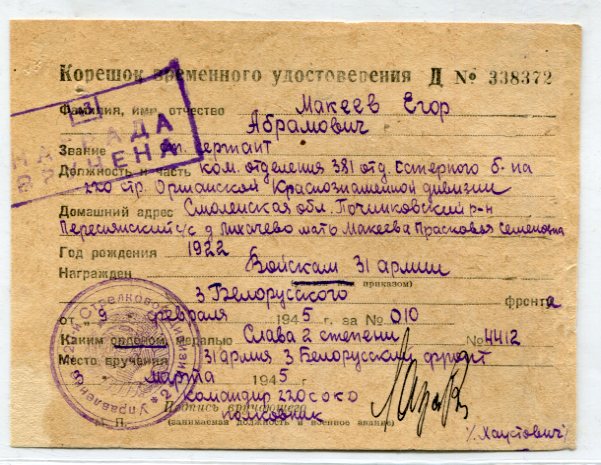 Корешок временного удостоверения Д № 338372
НАГРАДА
ВРУЧЕНА
Фамилия, имя, отчество Макеев Егор
Абрамович
Звание сержант
Должность и часть ком. отделения 381 отд. сатерного б-на
220 стр. Оршанской Краснознаменной дивизии
Домашний адрес Смоленская обл. Починковский р-н
Пересянский с/с д. Лихачево мать Макеева Прасковья Семеновна
Год рождения 1922
Награжден Войскам 31 армии
приказом)
3 Белорусского фронта
от "9 февраля 1945 г. за № 010
Каким орденом, медалью Слава 2 степени № 4412
Место вручения 31 армия 3 Белорусский фронт
марта 1945 г.
командир 220 СОКО
Подпись вручающего
полковник
М. П. (занимаемая должность и воинское звание)
/Хаустович/